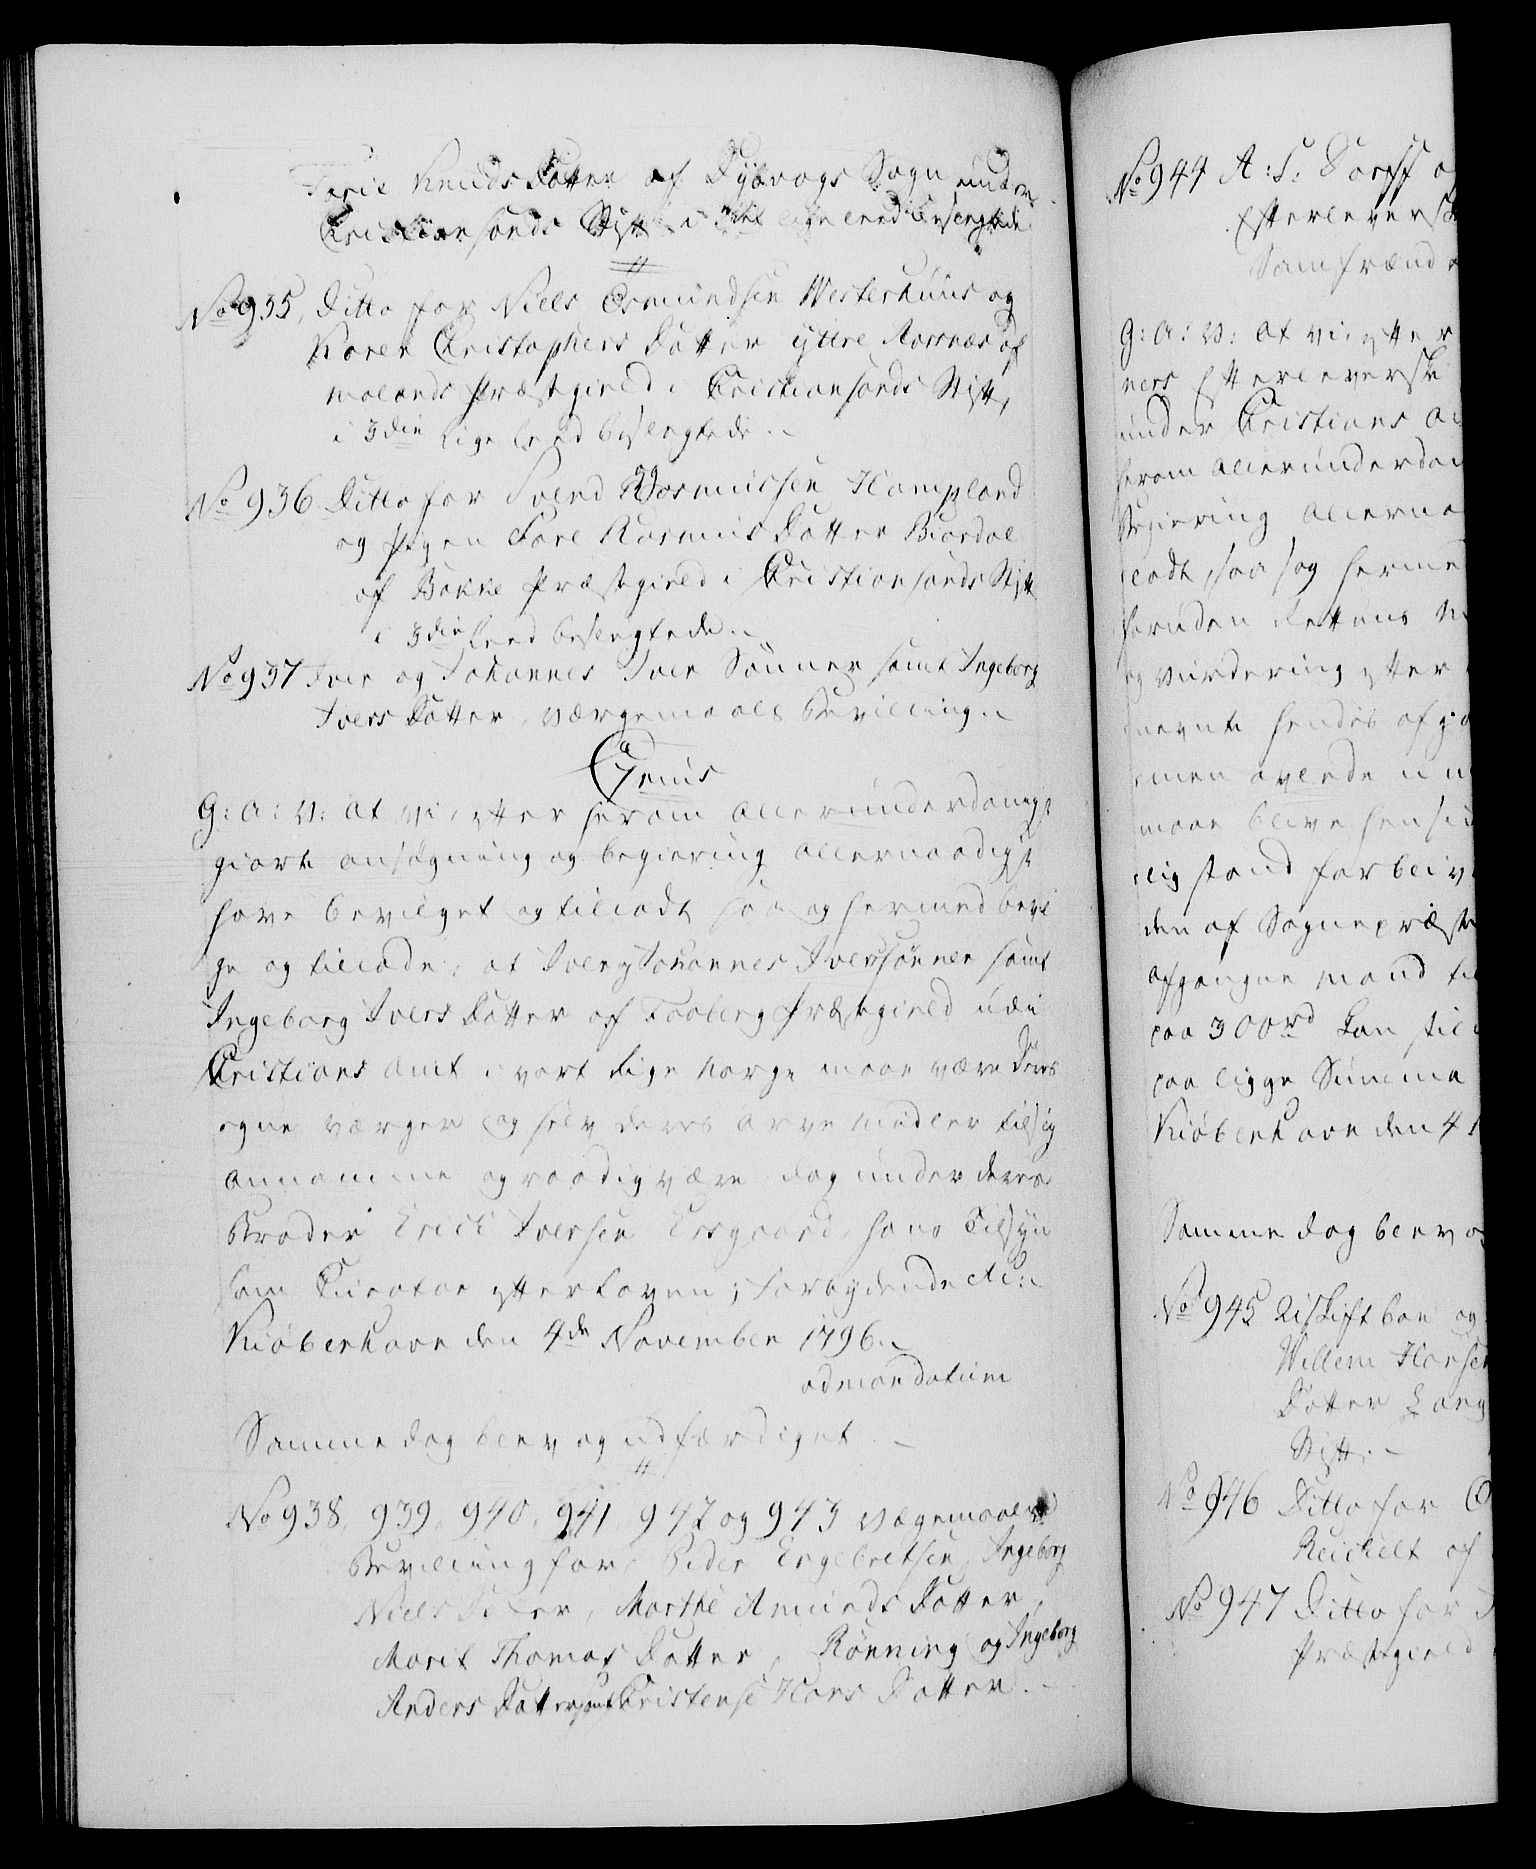 Torie Knuds Datter af Dybvogs Sogn under
Christiansands Stift i 3die lige leed besvogrede
No 935, Ditto for Niels Osmundsen Westerhuus og
Karen Christophers Datter yttre Aarsnæs af
molands Præstegield i Christiansands Stift,
i 3die lige leed besvogrede.
No 936 Ditto for Svend Rasmussen Hampland
og Pigen Tore Rasmus Datter Biordal
af Bakke Præstegield i Christiansands Stift
i 3die leed besvogrede.
No 937 Iver og Johannes Iver Sønner samt Ingeborg
Ivers Datter, værgemaals Bevilling.
Genus
G: A: V: at vi, efter herom allerunderdanigst
giorte ansøgning og begiering allernaadigst
have bevilget og tilladt, saa og hermed bevil
ge og tillade, at Iver og Johannes Iversønner samt
Ingeborg Ivers Datter af Faaberg Præstegield udi
Christians Amt i vort Rige Norge maae være deres
egne værger og selv deres arve midler til sig
annamme og raadig være, dog under deres
Broder Erich Iversen Ersgaard, hans Tilsyn
som Curator efter Loven; Forbydende etc:
Kiøbenhavn den 4de November 1796.
ad mandatum
Samme dag blev og udfærdiget.
No 938, 939, 940, 941, 942 og 943 vægemaals
Bevilling for Peder Engebretsen, Ingeborg
Niels Datter, Marthe Amunds Datter,
Marit Thomas Datter, Rønning og Ingeborg
Anders Datter samt Christense Hans Datter.
No 944 A: S: Dorff og
Efterleversk
Samfrænde
G: A: V: at vi, efter
ners Efterleverske
under Christians A
herom allerunderdan
Begiering allerna
ladt, saa og herme
foruden Rettens M
og vurdering efter
nevnte hendes afga
men avlede u m
maae blive hensid
lig stand forbliv
den af Sognepræste
afgangne mand ti
paa 300rd kan til
paa ligge Summa
Kiøbenhavn den 4
Samme dag blev o
No 945 Uskiftboe og
Willem Hansen
Datter Lang
Stift.
No 946 Ditto for C
Reichelt af
No 947 Ditto for
Præstegield